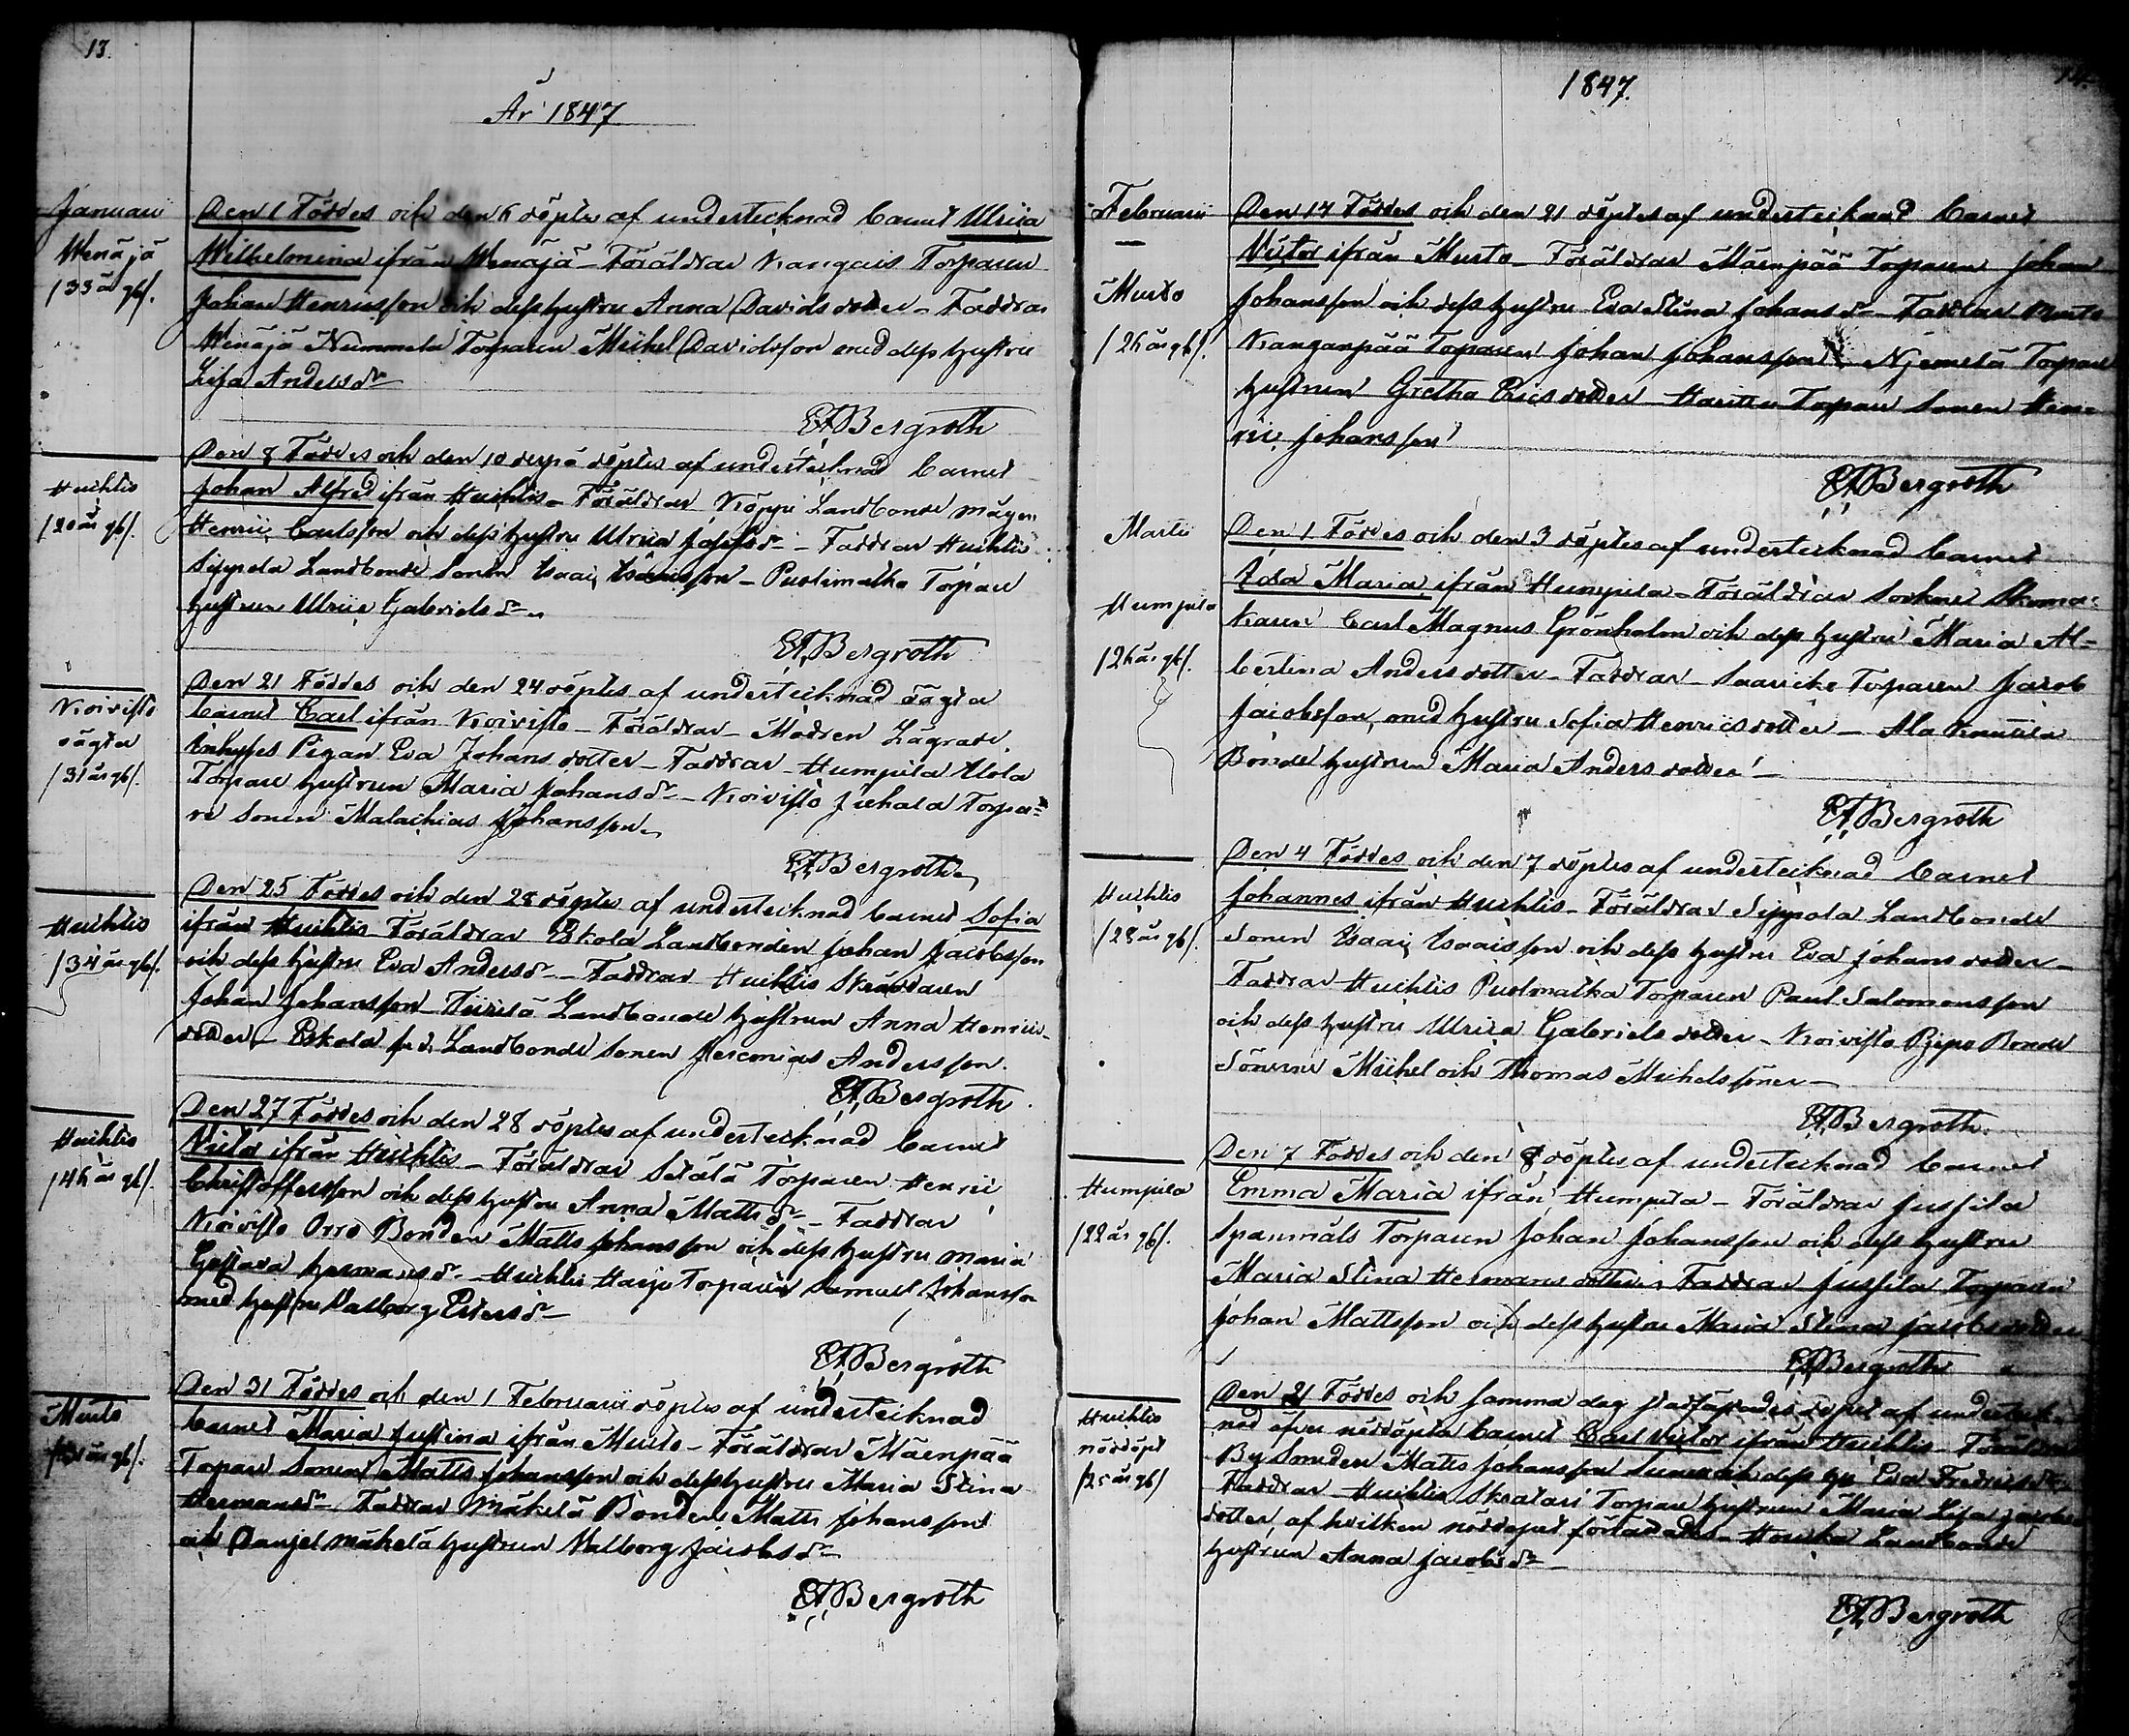 13.
År 1847
Januarii
Wenäjä
/33 år gl/.
Den 1 Föddes och den 6 döptes af undertecknad barnet Ulrica
Wilhelmina ifrån Wenäjä - Föräldrar Kangais Torparen
Johan Henricsson och dess hustru Anna Davidsdotter - Faddrar
Wenäjä Nummela Torparen Michel Davidsson med dess hustru
Lisa Andersdr
EA Bergroth
Huichtis
/20 år gl/.
Den 8 Föddes och den 10 döptes af undertecknad barnet
Johan Alfred ifrån Huichtis - Föräldrar Köppi Landbonde mågen
Henric Carlsson och dess hustru Ulrica Josefsdr - Faddrar Huichtis
Sippola Landbonde Sonen Isaac Isacsson - Puolimatka Torpare
hustrun Ulrica Gabrielsdr
EA Bergroth
Koivisto
oägta
/31 år gl/.
Den 21 Föddes och den 24 döptes af undertecknad oägta
barnet Carl ifrån Koivisto - Föräldrar - Modren Lägrade
Inhyses Pigan Eva Johansdotter - Faddrar - Humpila Ulola
Torpare hustrun Maria Johansdr - Koivisto Juhala Torpa-
re Sonen Malachias Johansson
EA Bergroth
Huichtis
/34 år gl/.
Den 25 Föddes och den 28 döptes af undertecknad barnet Sofia
ifrån Huichtis - Föräldrar Eskola Landbonden Johan Jacobsson
och dess hustru Eva Andersdr - Faddrar Huichtis Skräddaren
Johan Johansson - Tiirilä Landbonde hustrun Anna Henrics-
dotter - Eskola f.d. Landbonde Sonen Jeremias Andersson.
EA Bergroth
Huichtis
/46 år gl/.
Den 27 Föddes och den 28 döptes af undertecknad barnet
Victor ifrån Huichtis - Föräldrar Setälä Torparen Henric
Christoffersson och dess hustru Anna Mattsdr - Faddrar
Koivisto Orro Bonden Matts Johansson och dess hustru Maria
Gustava Hermansdr - Huichtis Harju Torparen Samuel Johansson
med hustru Valborg Petersdr
EA Bergroth
Mursto
/31 år gl/.
Den 31 Föddes och den 1 Februarii döptes af undertecknad
barnet Maria Justina ifrån Mursto - Föräldrar Mäenpää
Torpare Sonen Matts Johansson och dess hustru Maria Stina
Hermansdr - Faddrar Mäkelä Bonden Matts Johansson
och Danjel Mäkelä hustrun Valborg Jacobsdr
EA Bergroth
1847.
14.
Februarii
Mursto
/26 år gl/.
Den 14 Föddes och den 21 döptes af undertecknad barnet
Victor ifrån Mursto - Föräldrar Mäenpää Torparen Johan
Johansson och dess hustru Eva Stina Johansdr - Faddrar Mursto
Kanganpää Torparen Johan Johansson - Njemelä Torpare
hustrun Gretha Ericsdotter - Haritu Torpare Sonen Hen-
ric Johansson
EA Bergroth
Martii
Humpila
/26 år gl/.
Den 1 Föddes och den 3 döptes af undertecknad barnet
Ida Maria ifrån Humpila - Föräldrar Sockne Skoma-
karen Carl Magnus Grönholm och dess hustru Maria Al-
bertina Andersdotter - Faddrar - Saaricko Torparen Jacob
Jacobsson, med hustru Sofia Henricsdotter - Ala Knuutila
Bonde hustrun Maria Andersdotter
EA Bergroth
Huichtis
/28 år gl/.
Den 4 Föddes och den 7 döptes af undertecknad barnet
Johannes ifrån Huichtis - Föräldrar Sippola Landbonde
Sonen Isaac Isaacsson och dess hustru Eva Johansdotter -
Faddrar Huichtis Puolmatka Torparen Paul Salomonsson
och dess hustru Ulrica Gabrielsdotter - Koivisto Pjepo Bonde
Sönerne Michel och Thomas Michelssöner -
EA Bergroth
Humpila
/22 år gl/.
Den 7 Föddes och den 8 döptes af undertecknad barnet
Emma Maria ifrån Humpila - Föräldrar Jussila
Spanmåls Torparen Johan Johansson och dess hustru
Maria Stina Hermansdotter - Faddrar Jussila Torparen
Johan Mattsson och dess hustru Maria Stina Jacobsdotter
EA Bergroth
Huichtis
nöddöpt
/25 år gl/
Den 21 Föddes och samma dag stadfästades döpet af underteck-
nad öfver nöddöpta barnet Carl Victor ifrån Huichtis - Föräldrar
By Smeden Matts Johansson och dess hu Eva Fredricsdr
Faddrar - Huichtis Skratari Torpare hustrun Maria Lisa Jacobs
dotter, af hvilken nöddöpet förrättades - Houka Landbonde
hustrun Anna Jacobsdr
EA Bergroth